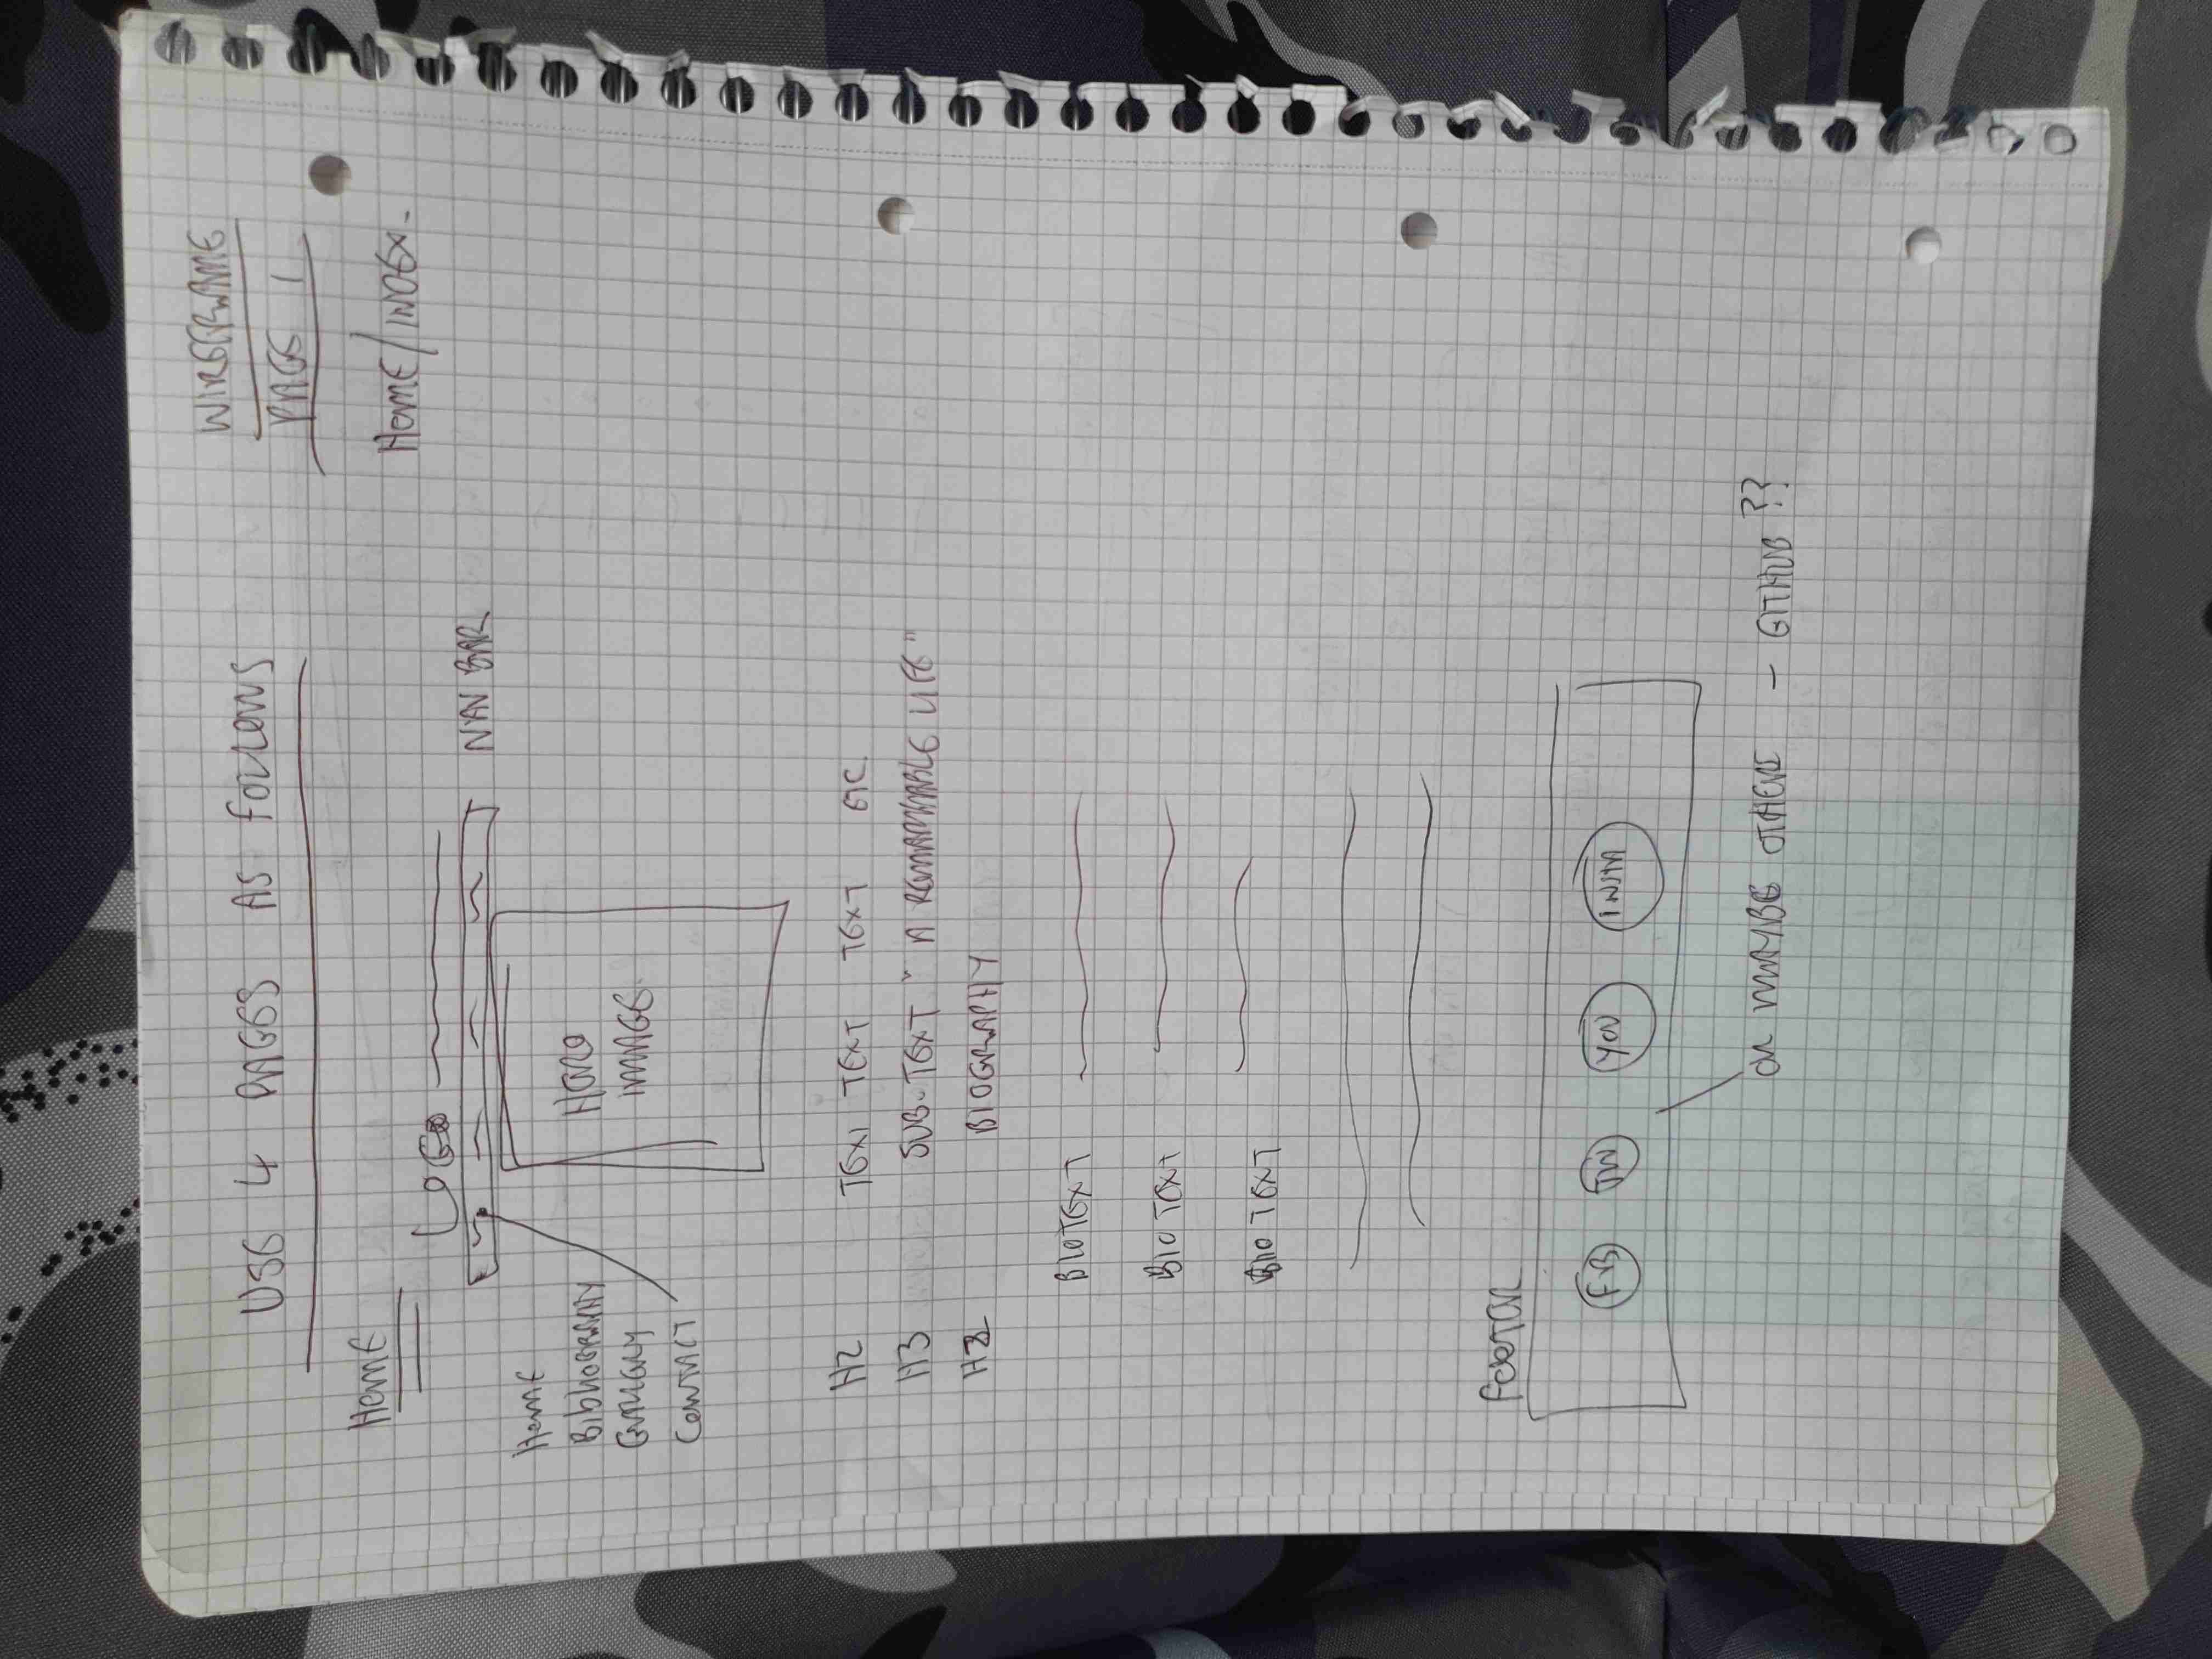 USE 4 PAGES AS FOLLOWS
WIREFRAME
PAGE 1
HOME/INDEX.
HOME
LOGO
NAV BAR
HOME
BIBLIOGRAPHY
GALLERY
CONTACT
HERO
IMAGE
H2 TEXT TEXT TEXT ETC.
H3 SUB-TEXT "A REMARKABLE LIFE"
BIOGRAPHY
BIO TEXT
BIO TEXT
BIO TEXT
FOOTER
FB TW YOU INSTA
OR MAYBE OTHERS - GITHUB??